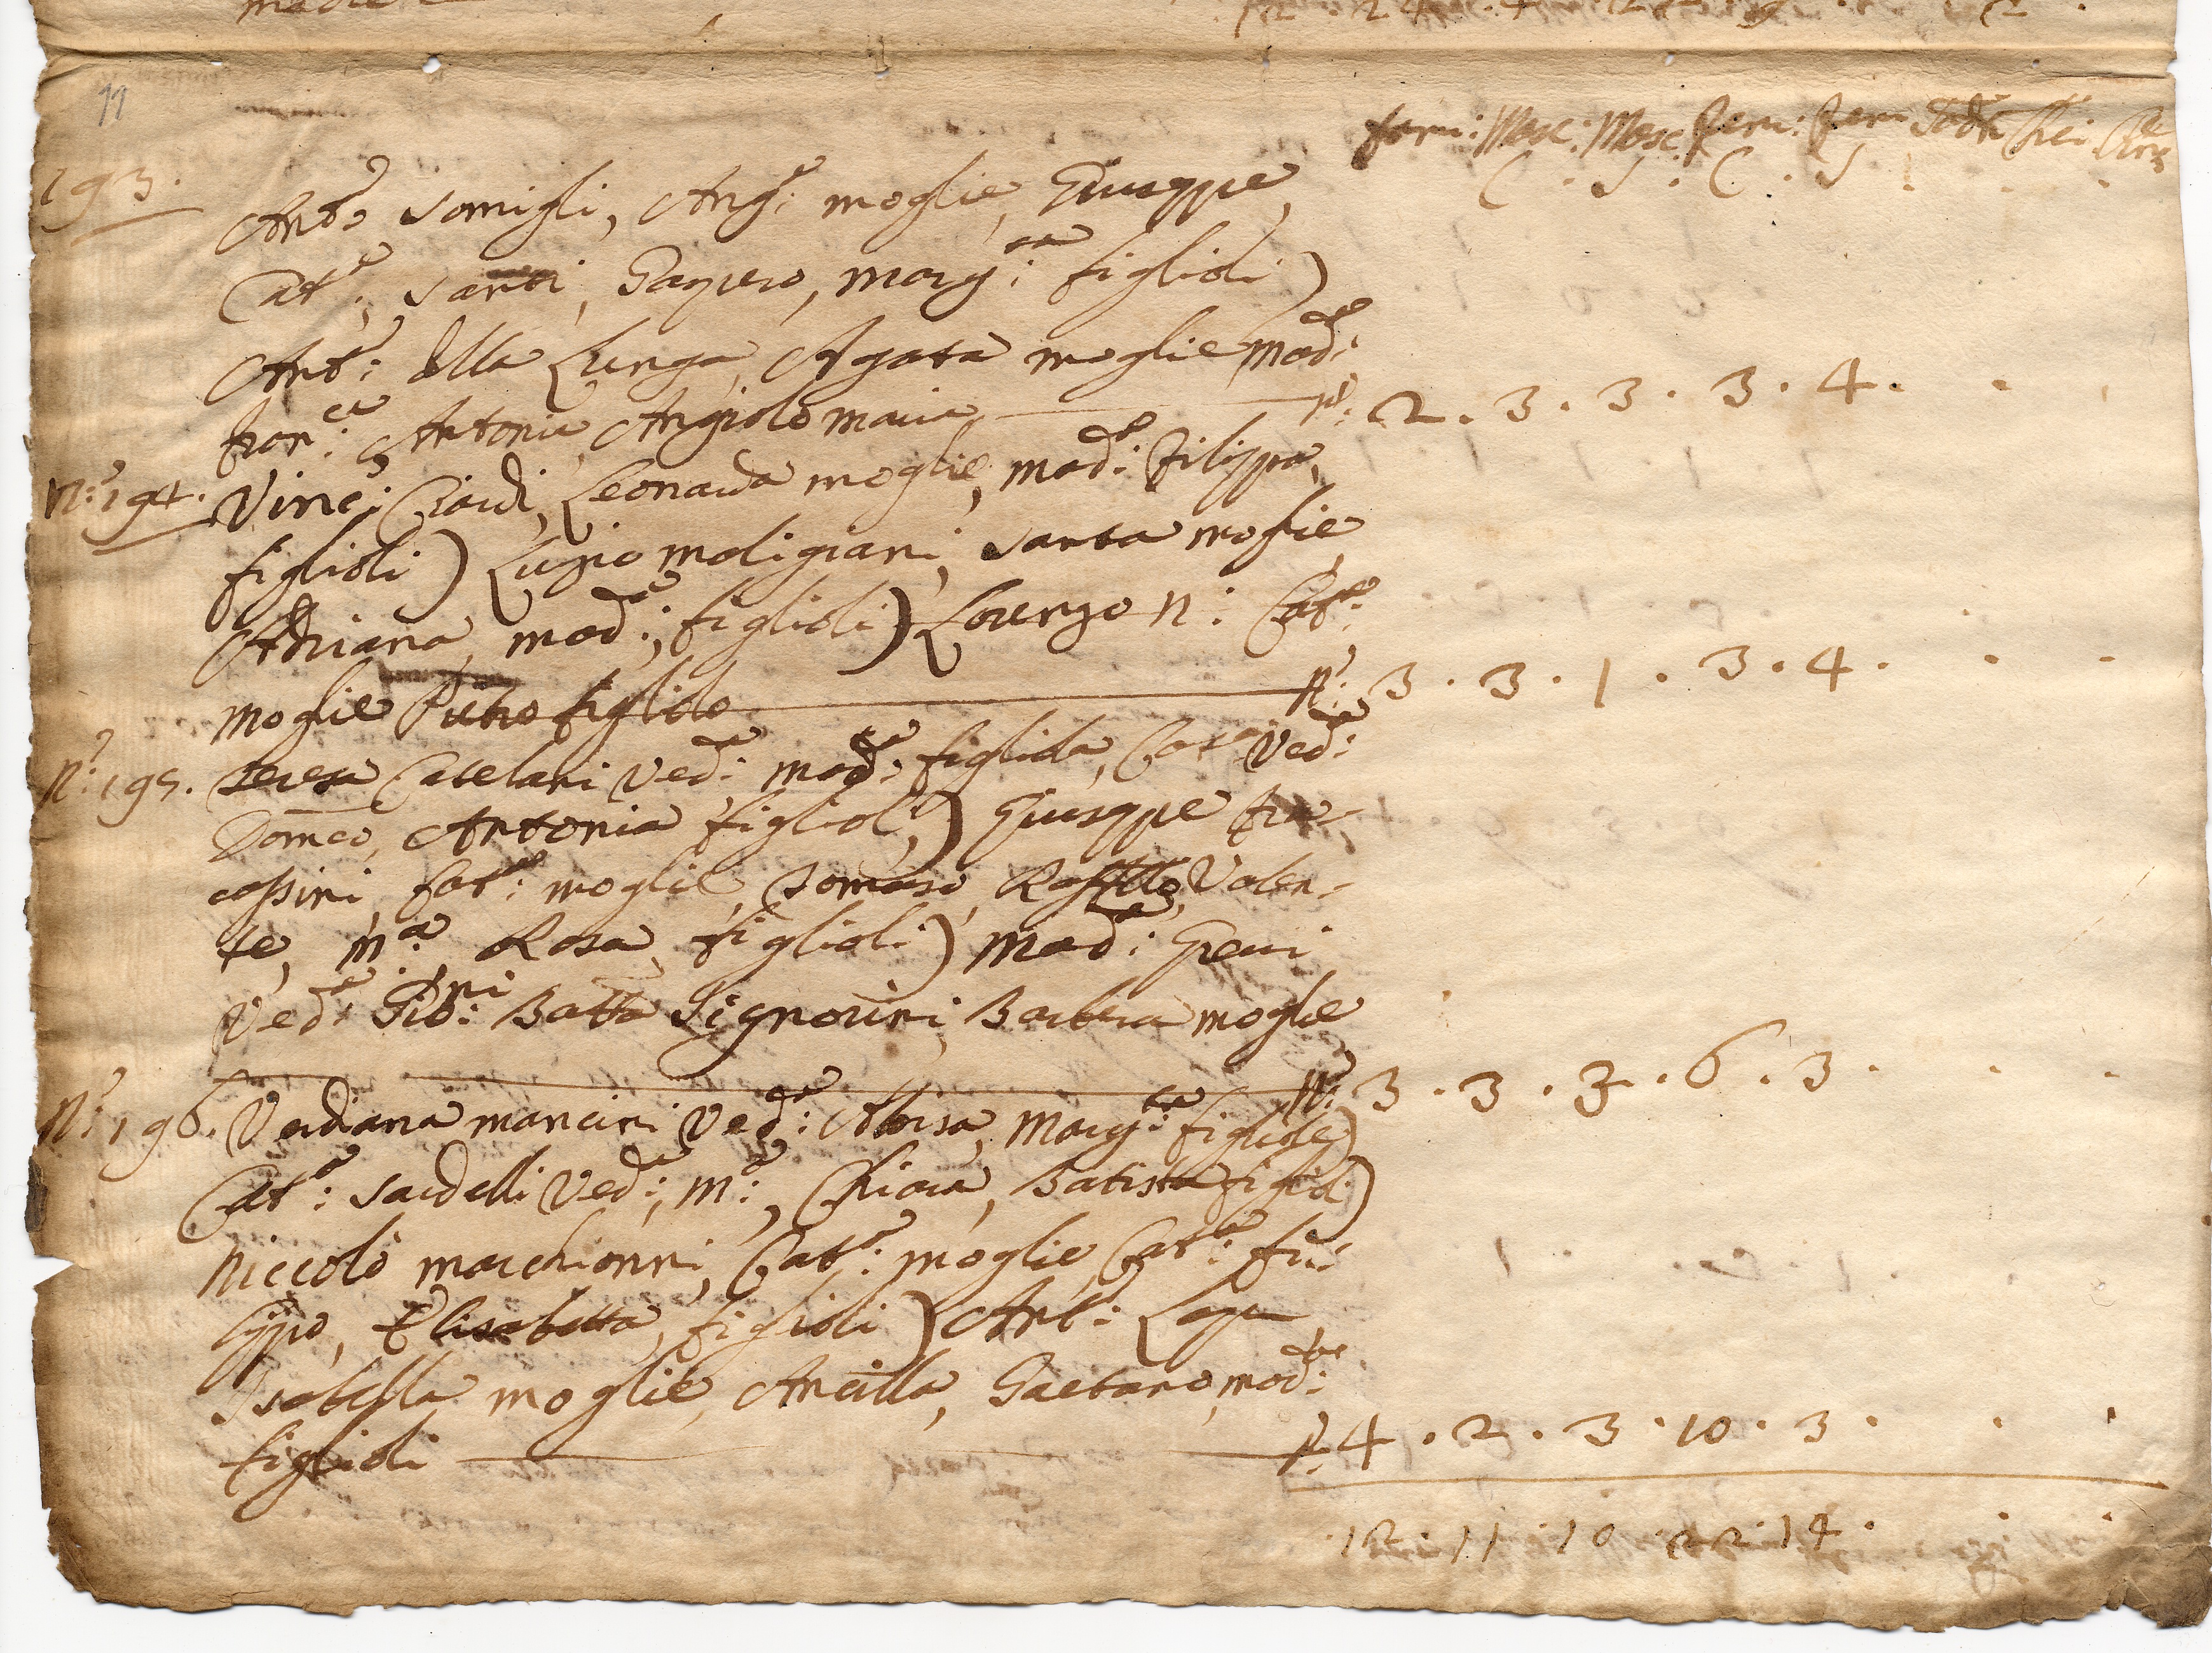 11
fam: Masc: Masc: Fem: Fem
C · S · C · S
193.
Ant.o Somigli, Ang.a: moglie, Giuseppe,
Cat.a:, Santi, Gaspero, Marg:ta figlioli)
Ant.o: della Lunga, Agata moglie, Mad:a
Fran:ca, Antonia, Angiolo Maria n.o: 2 . 3 . 3 . 3 . 4 .
N:o 194. Vinc:o Ciardi, Leonarda moglie, Mad:a Filippo,
figlioli) Santa moglie
Adriana, Mad:a, figlioli) Lorenzo N: Cat.a:
moglie Pietro figliolo N.o: 3 . 3 . 1 . 3 . 4 .
N:o 195. Teresa Catelani Ved:a Mad:a figliola, Cat.a Ved:a
Dom.co, Antonia figlioli,) Giuseppe Fra-
cassini, Cat.a: moglie, Tomaso, Raff.llo, Valen-
te, M:a, Rosa, figlioli) Mad:a
Ved:a Gio:ni Batta Signorini, Barbera moglie
N.o: 3 . 3 . 3 . 6 . 3 .
N:o 196. Verdiana Mancini Ved:a: Marg:ta figliole)
Cat.a: Sardelli Ved:a, M:a, Chiara, Batista figlioli)
Niccolò Marchionni, Cat.a: moglie, Cat.a: Fi-
lippo, Elisabetta, figlioli) Ant:o
Isabella moglie, Ancilla, Gaetano, Mad:na
figlioli N.o: 4 . 2 . 3 . 10 . 3 .
12 . 11 . 10 . 22 . 14 .